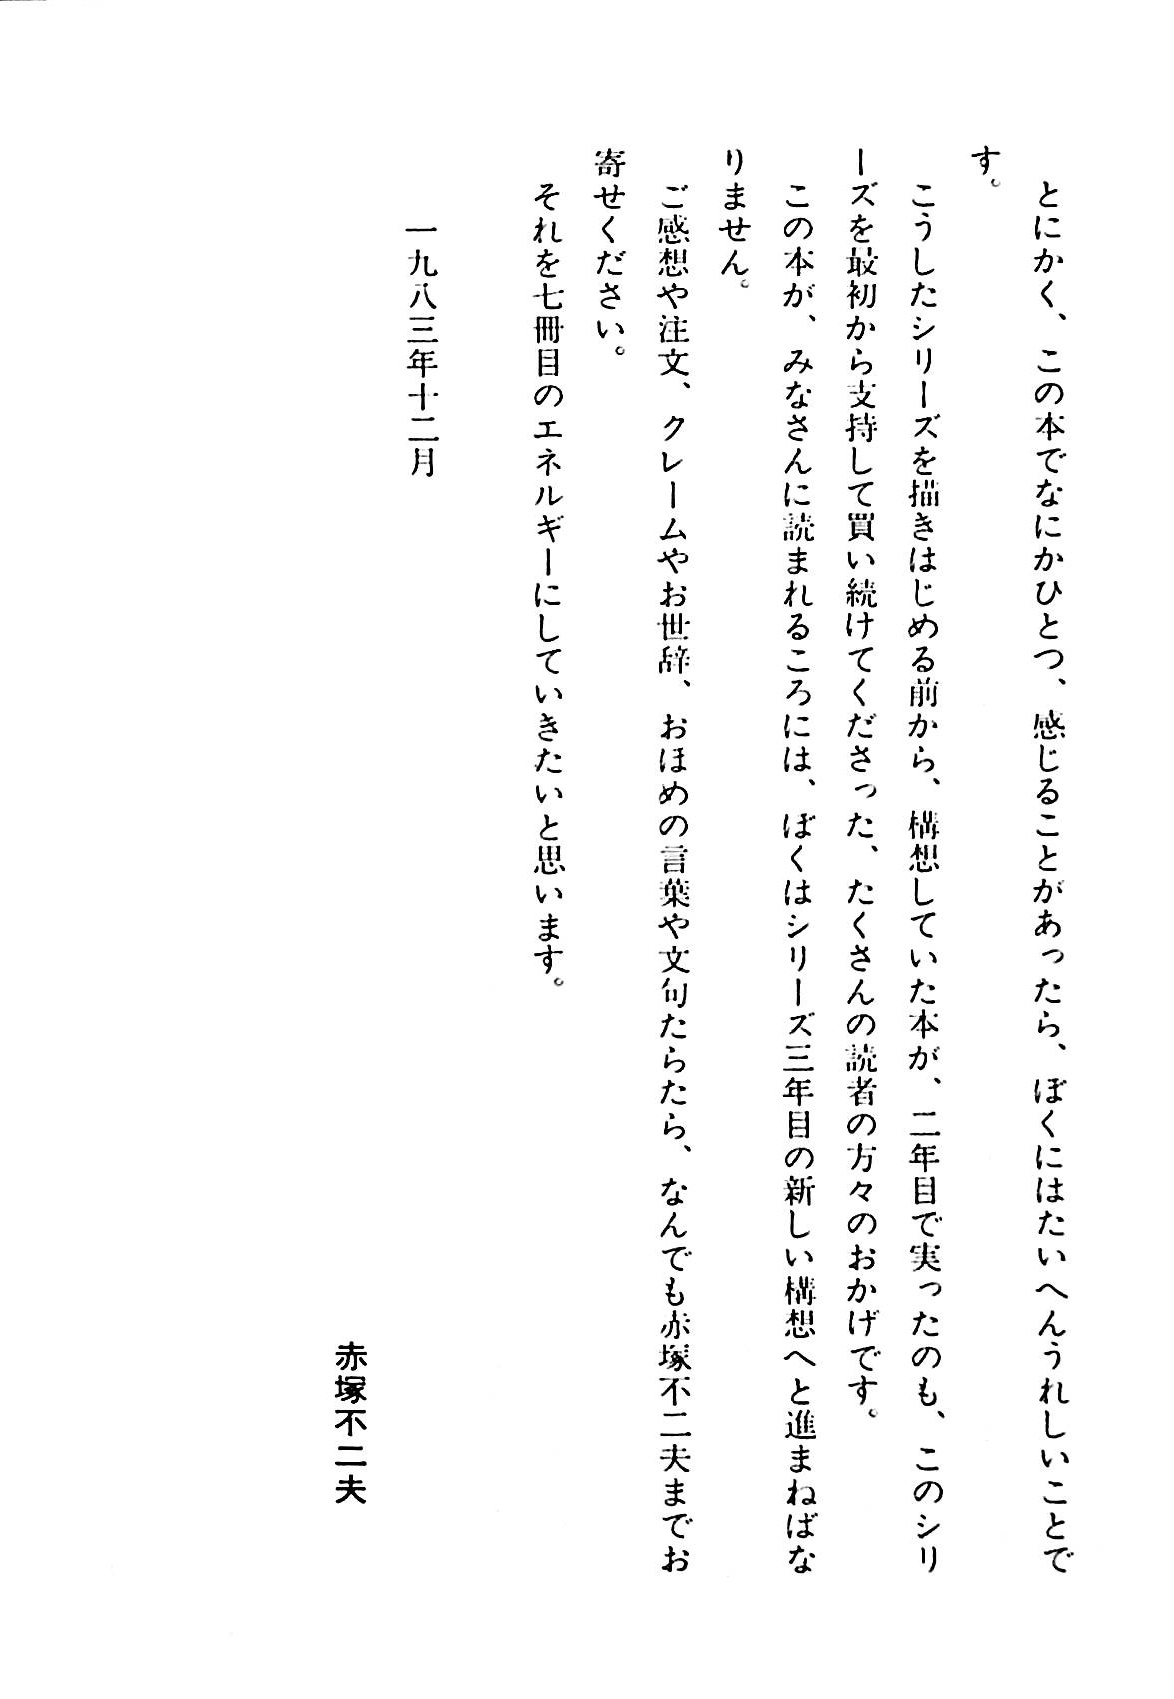 とにかく、この本でなにかひとつ、感じることがあったら、ぼくにはたいへんうれしいことで
す。
こうしたシリーズを描きはじめる前から、構想していた本が、二年目で実ったのも、このシリ
ーズを最初から支持して買い続けてくださった、たくさんの読者の方々のおかげです。
この本が、みなさんに読まれるころには、ぼくはシリーズ三年目の新しい構想へと進まねばな
りません。
ご感想や注文、クレームやお世辞、おほめの言葉や文句たらたら、なんでも赤塚不二夫までお
寄せください。
それを七冊目のエネルギーにしていきたいと思います。
一九八三年十二月
赤塚不二夫